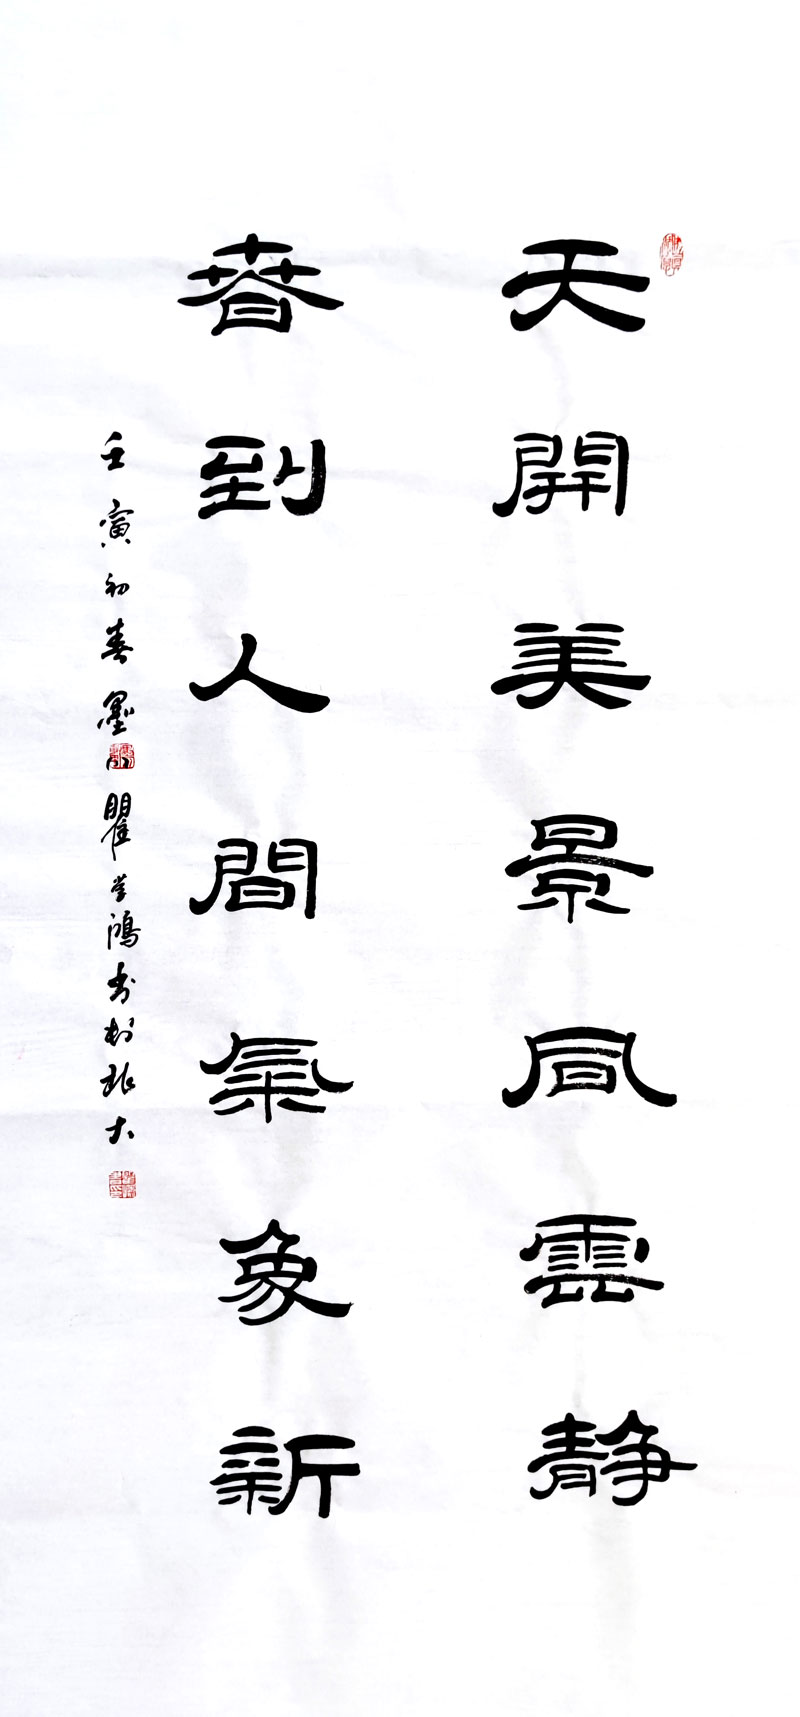 天開美景風雲静
春到人間氣象新
壬寅初春墨 瞿学鴻书於北大